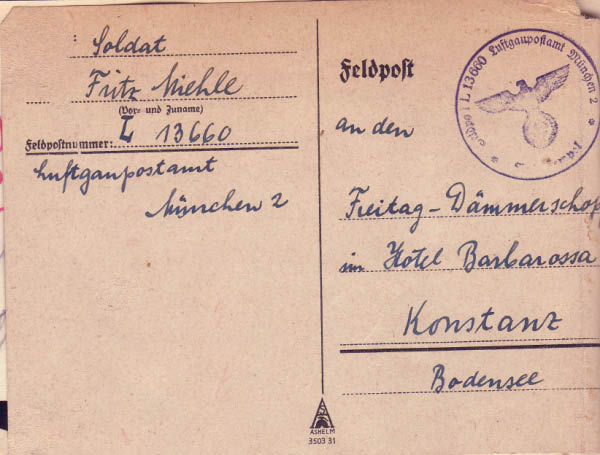 Soldat
Fritz Miehle
(Vor- und Zuname)
Feldpostnummer: L 13660
Luftgaupostamt
München 2
Feldpost
L 13660 Luftgaupostamt München 2
an den
Freitag-Dämmerschop
im Hotel Barbarossa
Konstanz
Bodensee
ASHELM
3503 31